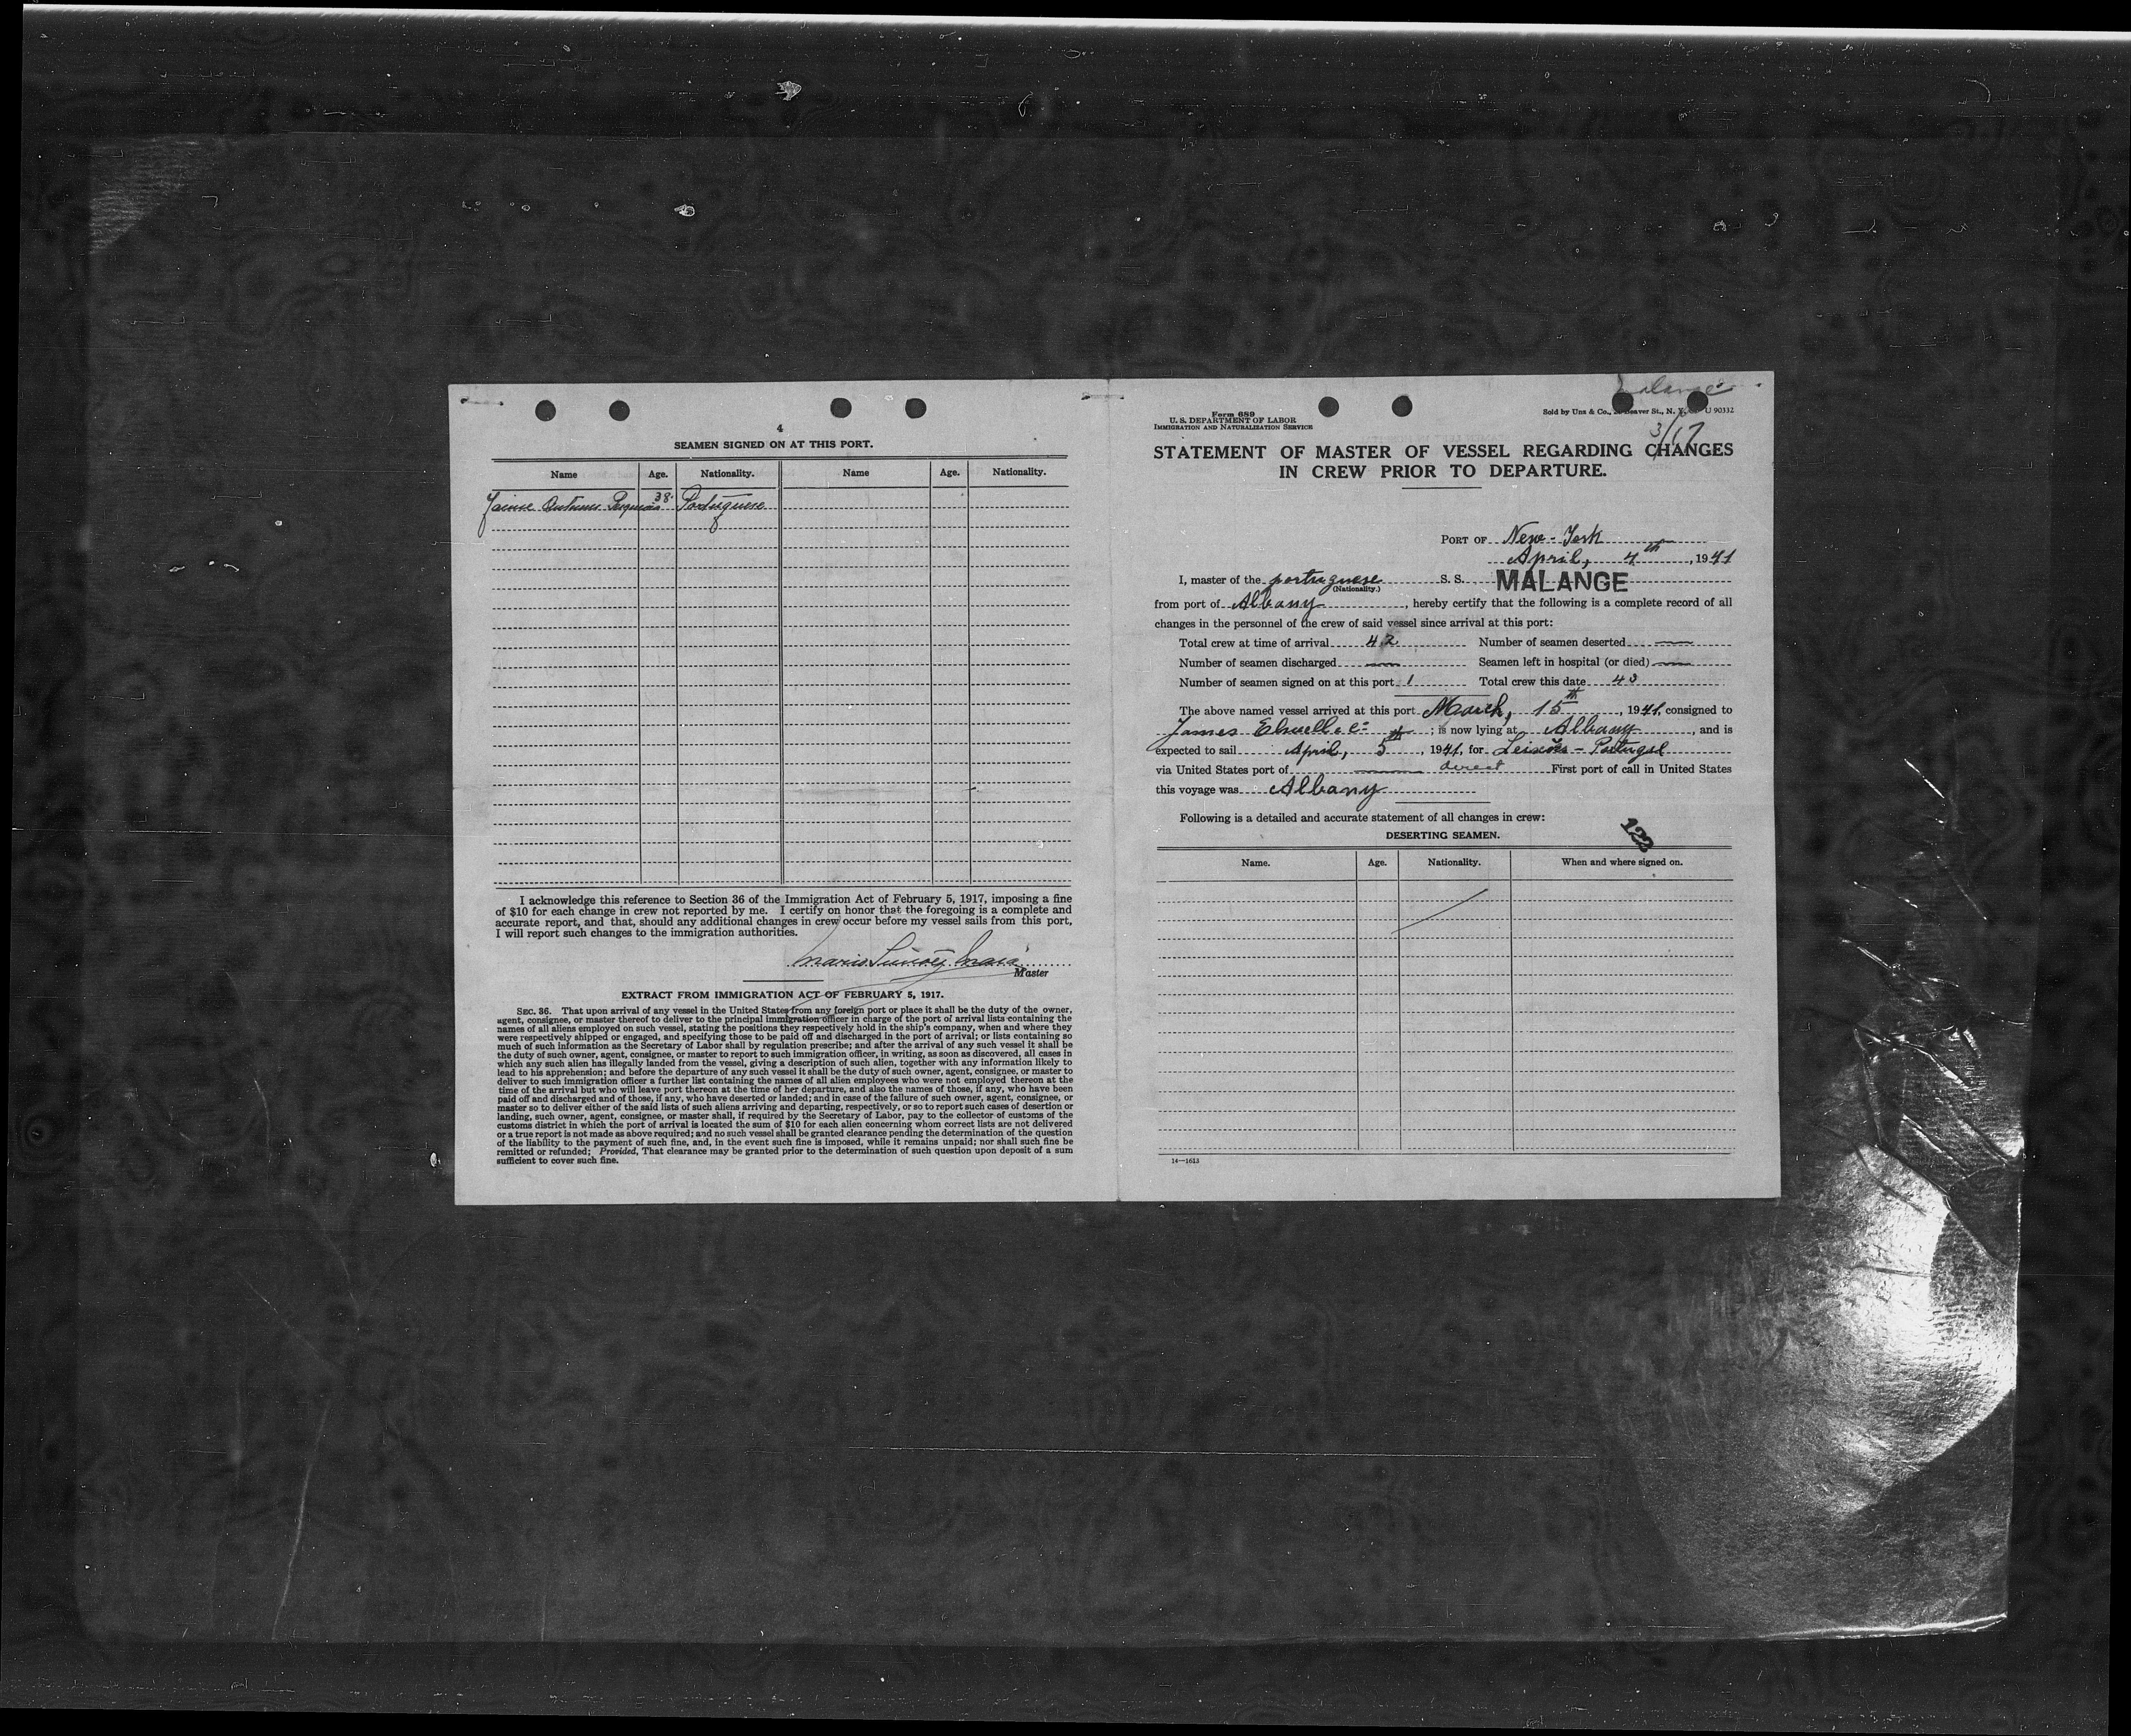 4
SEAMEN SIGNED ON AT THIS PORT.
Name Age. Nationality. Name Age. Nationality.
Jaime 38 Portuguese
I acknowledge this reference to Section 36 of the Immigration Act of February 5, 1917, imposing a fine
of $10 for each change in crew not reported by me. I certify on honor that the foregoing is a complete and
accurate report, and that, should any additional changes in crew occur before my vessel sails from this port,
I will report such changes to the immigration authorities.
Mario Simões Maia
Master
EXTRACT FROM IMMIGRATION ACT OF FEBRUARY 5, 1917.
SEC. 36. That upon arrival of any vessel in the United States from any foreign port or place it shall be the duty of the owner,
agent, consignee, or master thereof to deliver to the principal immigration officer in charge of the port of arrival lists containing the
names of all aliens employed on such vessel, stating the positions they respectively hold in the ship's company, when and where they
were respectively shipped or engaged, and specifying those to be paid off and discharged in the port of arrival; or lists containing so
much of such information as the Secretary of Labor shall by regulation prescribe; and after the arrival of any such vessel it shall be
the duty of such owner, agent, consignee, or master to report to such immigration officer, in writing, as soon as discovered, all cases in
which any such alien has illegally landed from the vessel, giving a description of such alien, together with any information likely to
lead to his apprehension; and before the departure of any such vessel it shall be the duty of such owner, agent, consignee, or master to
deliver to such immigration officer a further list containing the names of all alien employees who were not employed thereon at the
time of the arrival but who will leave port thereon at the time of her departure, and also the names of those, if any, who have been
paid off and discharged and of those, if any, who have deserted or landed; and in case of the failure of such owner, agent, consignee, or
master so to deliver either of the said lists of such aliens arriving and departing, respectively, or so to report such cases of desertion or
landing, such owner, agent, consignee, or master shall, if required by the Secretary of Labor, pay to the collector of customs of the
customs district in which the port of arrival is located the sum of $10 for each alien concerning whom correct lists are not delivered
or a true report is not made as above required; and no such vessel shall be granted clearance pending the determination of the question
of the liability to the payment of such fine, and, in the event such fine is imposed, while it remains unpaid; nor shall such fine be
remitted or refunded; Provided, That clearance may be granted prior to the determination of such question upon deposit of a sum
sufficient to cover such fine.
Malange
Form 689
U. S. DEPARTMENT OF LABOR
IMMIGRATION AND NATURALIZATION SERVICE
Sold by Unz & Co., Beaver St., N. Y. U 90332
3/17
STATEMENT OF MASTER OF VESSEL REGARDING CHANGES
IN CREW PRIOR TO DEPARTURE.
PORT OF New-York
April, 4th, 1941
I, master of the portuguese S. S. MALANGE
(Nationality.)
from port of Albany, hereby certify that the following is a complete record of all
changes in the personnel of the crew of said vessel since arrival at this port:
Total crew at time of arrival 42 Number of seamen deserted
Number of seamen discharged Seamen left in hospital (or died)
Number of seamen signed on at this port 1 Total crew this date 43
The above named vessel arrived at this port March, 15th, 1941, consigned to
James Elwell & Co; is now lying at Albany, and is
expected to sail April, 5th, 1941, for Leixões - Portugal
via United States port of direct First port of call in United States
this voyage was Albany
Following is a detailed and accurate statement of all changes in crew:
122
DESERTING SEAMEN.
Name. Age. Nationality. When and where signed on.
14—1613